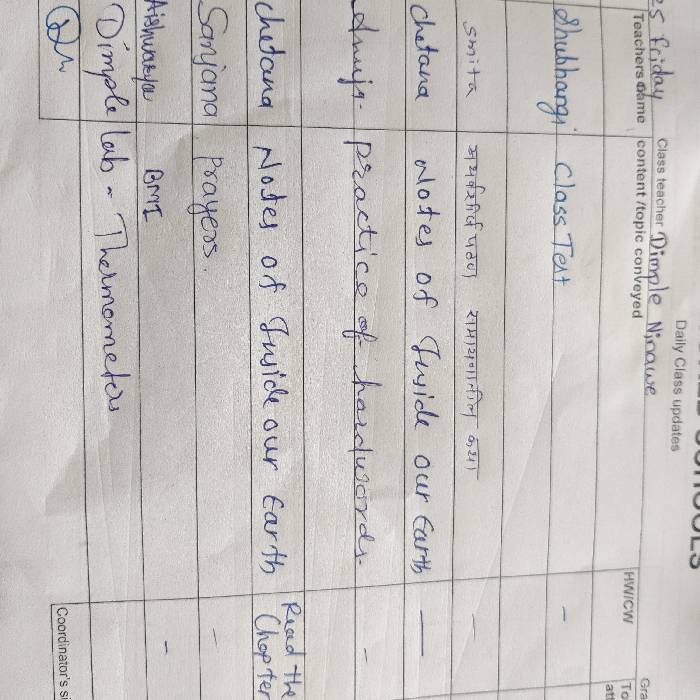 Daily Class updates
es Friday Class teacher Dimple Ninawe Gra
Teachers Name content /topic conveyed HW/CW To
att
Shubhangi Class Test -
Smita अथर्वशीर्ष पठण रामायणातील कथा -
Chetana Notes of Inside our Earth —
Anuja - practice of hardwords. -
Chetana Notes of Inside our Earth Read the
Chapter
Sanjana Prayers. -
Aishwarya BMI -
Dimple lab - Thermometer
Coordinator's si